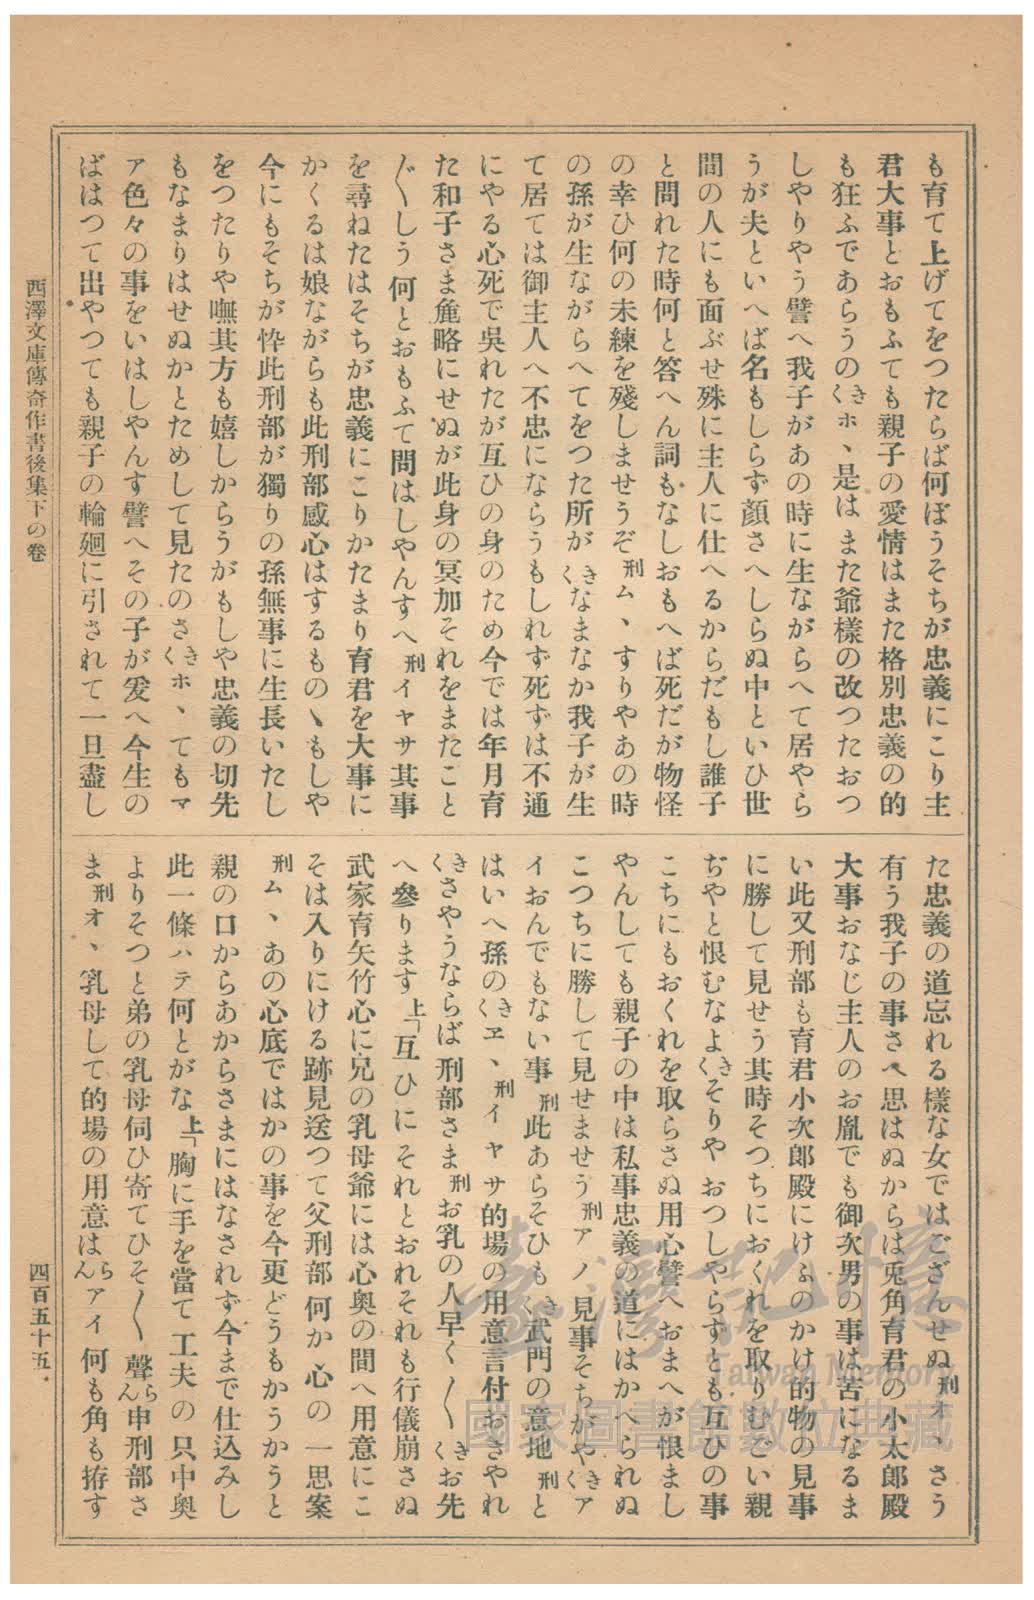 も育て上げてをつたらば何ぼうそちが忠義にこり主
君大事とおもふても親子の愛情はまた格別忠義の的
も狂ふであらうの きくホヽ是はまた爺樣の改つたおつ
しやりやう譬へ我子があの時に生ながらへて居やら
うが夫といへば名もしらず顏さへしらぬ中といひ世
間の人にも面ぶせ殊に主人に仕へるからだもし誰子
と問れた時何と答へん詞もなしおもへば死だが物怪
の幸ひ何の未練を殘しませうぞ 刑ムヽすりやあの時
の孫が生ながらへてをつた所が きくなまなか我子が生
て居ては御主人へ不忠にならうもしれず死ずは不通
にやる心死で吳れたが互ひの身のため今では年月育
た和子さま麁略にせぬが此身の冥加それをまたこと
〴〵しう何とおもふて問はしやんすへ 刑イヤサ其事
を尋ねたはそちが忠義にこりかたまり育君を大事に
かくるは娘ながらも此刑部感心はするものヽもしや
今にもそちが忰此刑部が獨りの孫無事に生長いたし
をつたりや嘸其方も嬉しからうがもしや忠義の切先
もなまりはせぬかとためして見たのさ きくホヽてもマ
ア色々の事をいはしやんす譬へその子が爰へ今生の
ばはつて出やつても親子の輪廻に引されて一旦盡し
た忠義の道忘れる樣な女ではござんせぬ 刑オヽさう
有う我子の事さへ思はぬからは兎角育君の小太郎殿
大事おなじ主人のお胤でも御次男の事は苦になるま
い此又刑部も育君小次郎殿にけふのかけ的物の見事
に勝して見せう其時そつちにおくれを取りむごい親
ぢやと恨むなよ きくそりやおつしやらずとも互ひの事
こちにもおくれを取らさぬ用心譬へおまへが恨まし
やんしても親子の中は私事忠義の道にはかへられぬ
こつちに勝して見せませう 刑アノ見事そちがや きくア
イおんでもない事 刑此あらそひも きく武門の意地 刑と
はいへ孫の きくヱヽ 刑イヤサ的場の用意言付おさやれ
きくさやうならば刑部さま 刑お乳の人早く〱 きくお先
へ參ります 上「互ひにそれとおれそれも行儀崩さぬ
武家育矢竹心に兄の乳母爺には心奧の間へ用意にこ
そは入りにける跡見送つて父刑部何か心の一思案
刑ムヽあの心底ではかの事を今更どうもかうかうと
親の口からあからさまにはなされず今まで仕込みし
此一條ハテ何とがな 上「胸に手を當て工夫の只中奧
よりそつと弟の乳母伺ひ寄てひそ〱聲 らん申刑部さ
ま 刑オヽ乳母して的場の用意は らんアイ何も角も拵す
西澤文庫傳奇作書後集下の卷
四百五十五
臺灣記憶
Taiwan Memory
國家圖書館數位典藏